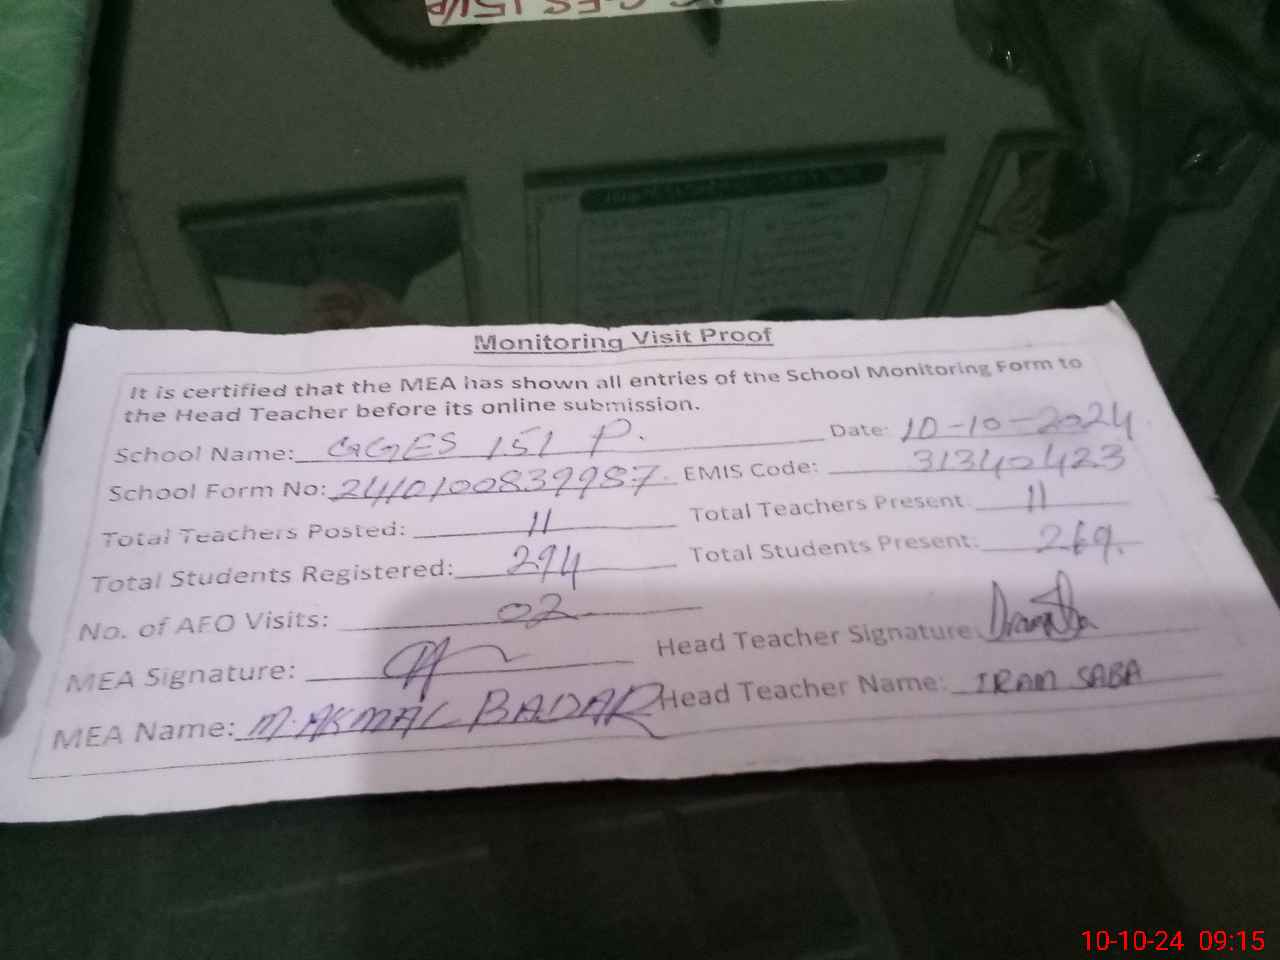 Monitoring Visit Proof
It is certified that the MEA has shown all entries of the School Monitoring Form to
the Head Teacher before its online submission.
School Name: GGES 151 P. Date: 10-10-2024
School Form No: 2410100839987. EMIS Code: 31340423
Total Teachers Posted: 11 Total Teachers Present: 11
Total Students Registered: 294 Total Students Present: 269.
No. of AEO Visits: 02
MEA Signature: Head Teacher Signature:
MEA Name: M. AKMAL BADAR Head Teacher Name: IRAM SABA
10-10-24 09:15